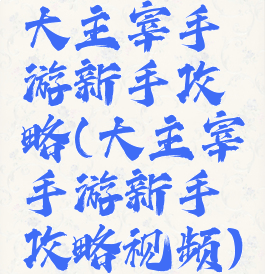 大主宰手
游新手攻
略(大主宰
手游新手
攻略视频)